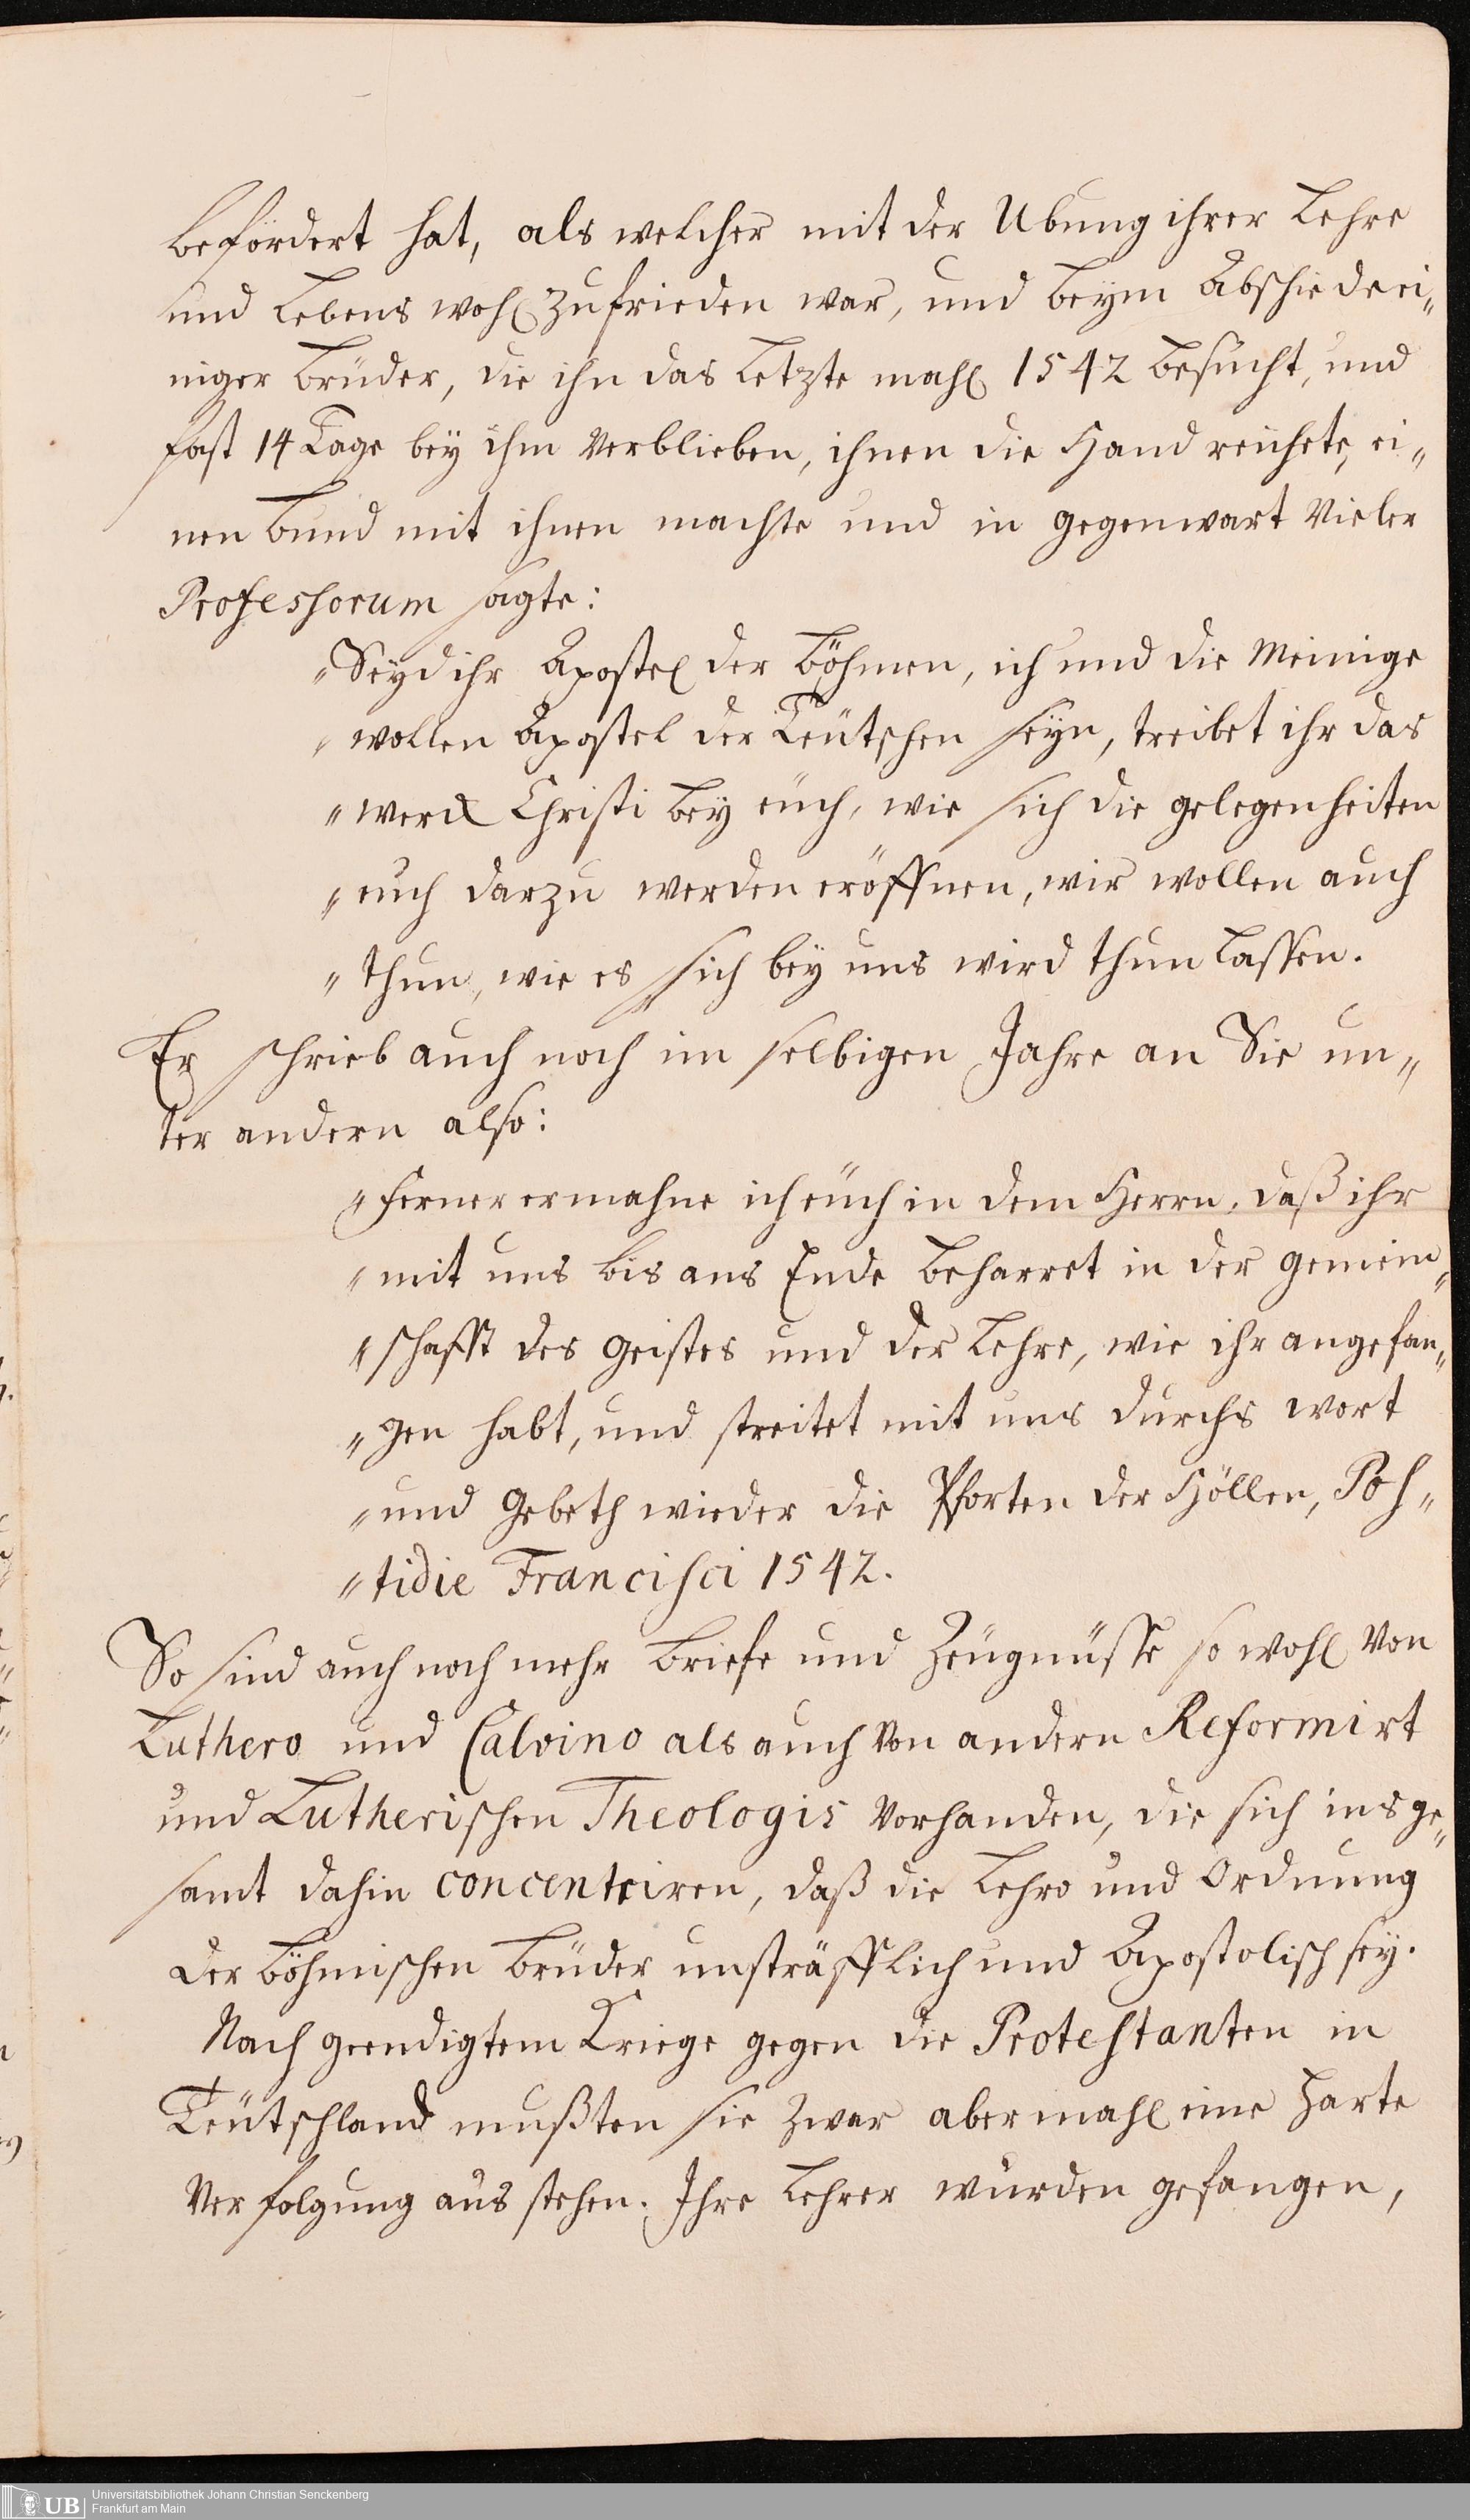 befördert hat, als welcher mit der Ubung ihrer Lehre
und Lebens wohl zufrieden war, und beym Abschied ei„
niger Brüder, die ihn das Letzte mahl 1542 besucht, und
fast 14 Tage beÿ ihm verblieben, ihnen die Hand reichete, ei„
nen Bund mit ihnen machte und in gegenwart vieler
Professorum sagte:
„Seÿd ihr Apostel der Böhmen, ich und die Meinige
„wollen Apostel der Teütschen seÿn, treibet ihr das
„werck Christi beÿ eüch, wie sich die gelegenheiten
„euch darzu werden eröffnen, wir wollen auch
„thun, wie es sich beÿ uns wird thun lassen.
Er schrieb auch noch im selbigen Jahre an Sie un„
ter andern also:
„ferner ermahne ich eüch in dem Herrn, daß ihr
„mit uns bis ans Ende beharret in der gemein„
„schafft des Geistes und der Lehre, wie ihr angefan„
„gen habt, und streitet mit uns durchs wort
„und Gebeth wieder die Pforten der Höllen, Pos„
„tidie Francisci 1542.
So sind auch noch mehr Briefe und Zeügnüsse so wohl von
Luthero und Calvino als auch von andern Reformirt
und Lutherischen Theologis vorhanden, die sich ins ge„
samt dahin concentriren, daß die Lehre und Ordnung
der Böhmischen Brüder unsträfflich und Apostolisch seÿ.
Nach geendigtem Kriege gegen die Protestanten in
Teütschland mußten sie zwar abermahl eine harte
Verfolgung aus stehen. Ihre Lehrer wurden gefangen,
UB
Universitätsbibliothek Johann Christian Senckenberg
Frankfurt am Main